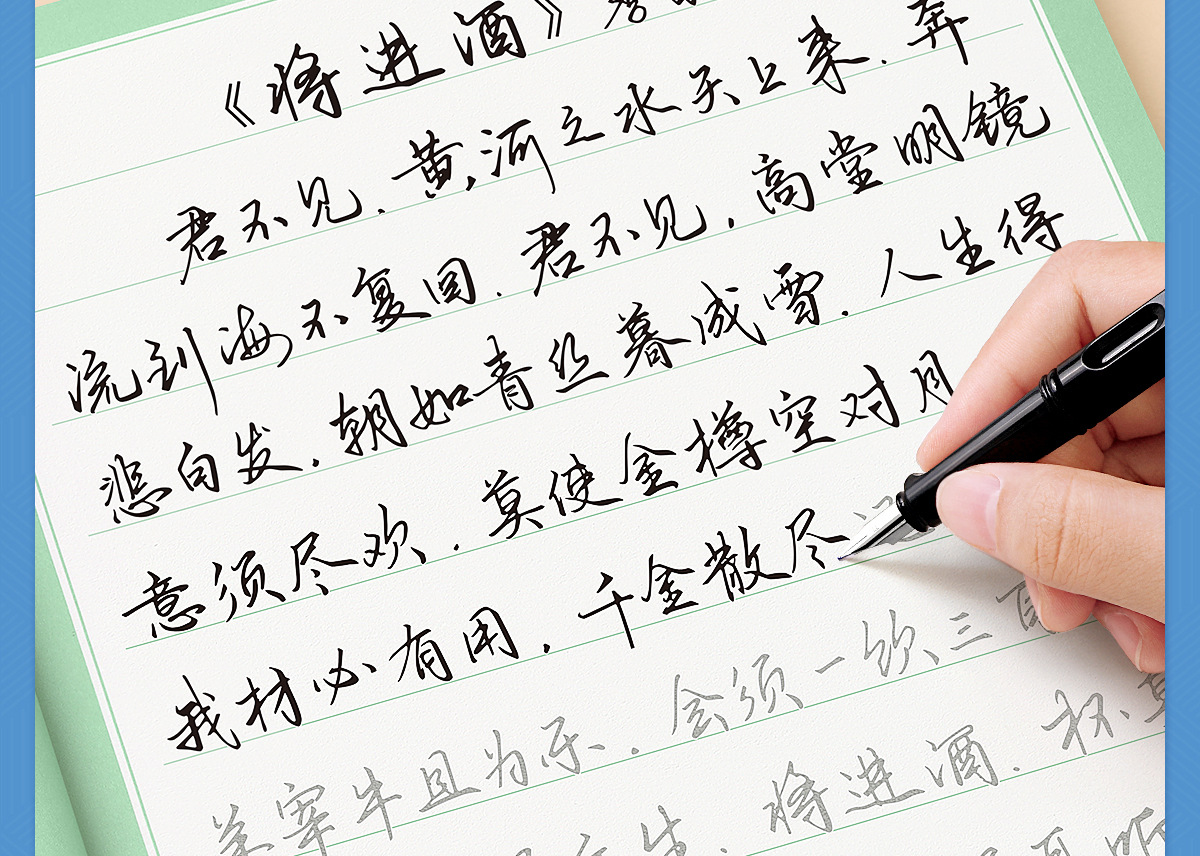 《将进酒》
君不见，黄河之水天上来，奔
流到海不复回，君不见，高堂明镜
悲白发，朝如青丝暮成雪，人生得
意须尽欢，莫使金樽空对月
我材必有用，千金散尽
羊宰牛且为乐，会须一饮三百
生，将进酒，杯莫